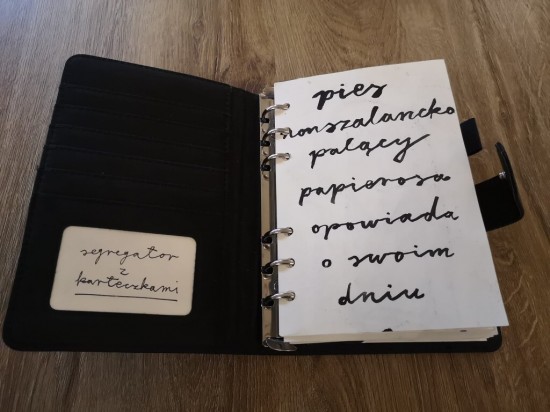 segregator
z
karteczkami
pies
nonszalancko
palący
papierosa
opowiada
o swoim
dniu